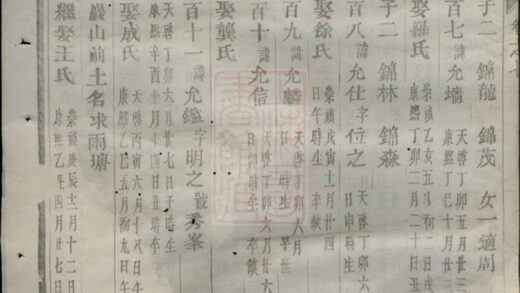 子二 錦龍 錦茂 女一適周
百七 諱允墻 天啓丁卯五月三
康熙丁巳十月廿三
娶羅氏 崇禎乙亥五月初二日戌
康熙丁卯二月二十日
子二 錦林 錦森
百八 諱允仕 字位之 天啓丁卯六
日申時生
娶徐氏 崇禎戊寅十一月廿四
日午時生 卒缺
百九 諱允麟 天啓丁卯六月
日 時生 早世
百十 諱允信 天啓丁卯六月廿六
日 時生 卒缺
娶龔氏
百十一 諱允鑑 字明之 號秀峯
天啓丁卯六月廿七日子時生
康熙辛酉十月十四日丑時卒
娶成氏 天啓丙寅六月十八日午
康熙乙巳五月初九日午
巖山前土名求雨塘
繼娶王氏 崇禎庚辰十二月十二日
康熙乙丑四月廿七日